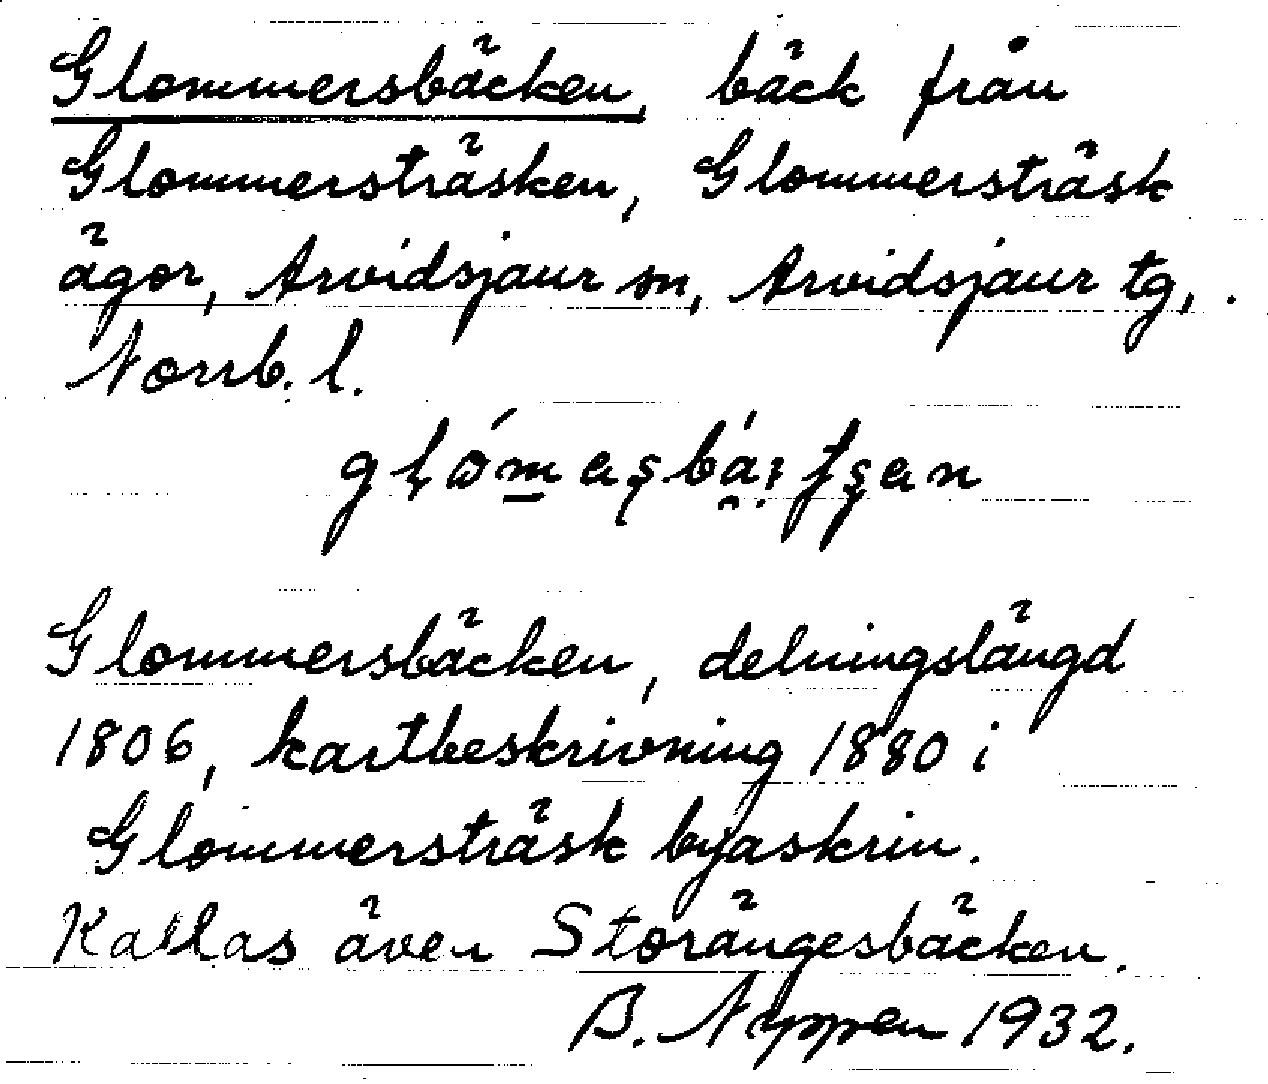 Glommersbäcken, bäck från
Glommersträsken, Glommersträsk
ägor, Arvidsjaur sn, Arvidsjaur tg,
Norrb. l.
Glommersbäcken, delningslängd
1806, kartbeskrivning 1880 i
Glommersträsk byaskrin.
Kallas även Storängesbäcken.
B. Nyppen 1932.